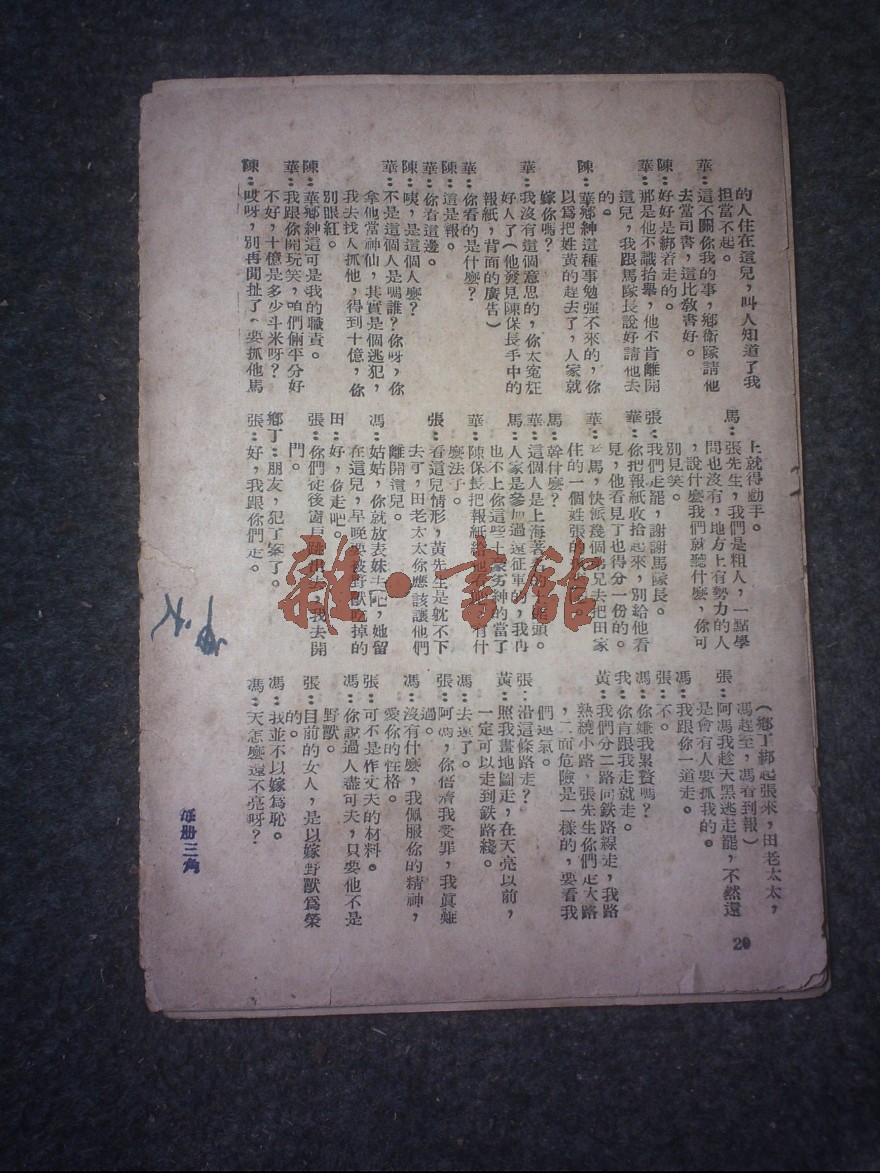 的人住在這兒，叫人知道了我
担當不起。
華：這不關你我的事，鄉衛隊請他
去當司書，這比敎書好。
陳：好好是綁着走的。
華：那是他不識抬舉，他不肯離開
這兒，我跟馬隊長說好請他去
的。
陳：華鄉紳這種事勉强不來的，你
以爲把姓黃的趕去了，人家就
嫁你嗎？
華：我沒有這個意思的，你太寃枉
好人了（他發見陳保長手中的
報紙，背面的廣告）
華：你看的是什麼？
陳：這是報。
華：你看這邊。
陳：咦，是這個人麼？
華：不是這個人是嗎誰？你呀，你
拿他當神仙，其實是個逃犯，
我去找人抓他，得到十億，你
別眼紅。
陳：華鄉紳這可是我的職責。
華：我跟你開玩笑，咱們倆平分好
不好，十億是多少斗米呀？
陳：哎呀，別再閒扯了。要抓他馬
上就得動手。
馬：張先生，我們是粗人，一點學
問也沒有，地方上有勢力的人
，說什麼我們就聽什麼，你可
別見笑。
張：我們走罷，謝謝馬隊長。
華：你把報紙收拾起來，別給他看
見，他看見了也得分一份的。
華：老馬，快派幾個弟兄去把田家
住的一個姓張的
馬：幹什麼？
華：這個人是上海著名的大
馬：人家是參加過遠征軍的，我再
也不上你這些土豪劣紳的當了
華：陳保長把報紙給他看，有什
麼法子。
張：看這兒情形，黃先生是躭不下
去了，田老太太你應該讓他們
離開這兒。
馮：姑姑，你就放表妹去吧，她留
在這兒，早晚要被野獸吃掉的
田：好，你走吧。
張：你們從後窗戶跳出去，我去開
門。
鄉丁：朋友，犯了案了。
張：好，我跟你們走。
（鄉丁綁起張來，田老太太，
馮趕至，馮看到報）
張：阿馮我趁天黑逃走罷，不然還
是會有人要抓我的。
馮：我跟你一道走。
張：不。
馮：你嫌我累贅嗎？
我：你肯跟我走就走。
黃：我們分二路向鉄路線走，我路
熟繞小路，張先生你們走大路
，二面危險是一樣的，要看我
們運氣。
張：沿這條路走？
黃：照我畫地圖走，在天亮以前，
一定可以走到鉄路綫。
馮：去遠了。
張：阿馮，你倍着我受罪，我眞難
過。
馮：沒有什麼，我佩服你的精神，
愛你的性格。
張：可不是作丈夫的材料。
馮：你說過人盡可夫，只要他不是
野獸。
張：目前的女人，是以嫁野獸爲榮
的。
馮：我並不以嫁爲恥。
馮：天怎麼還不亮呀？
20
每册三角
雜·書館